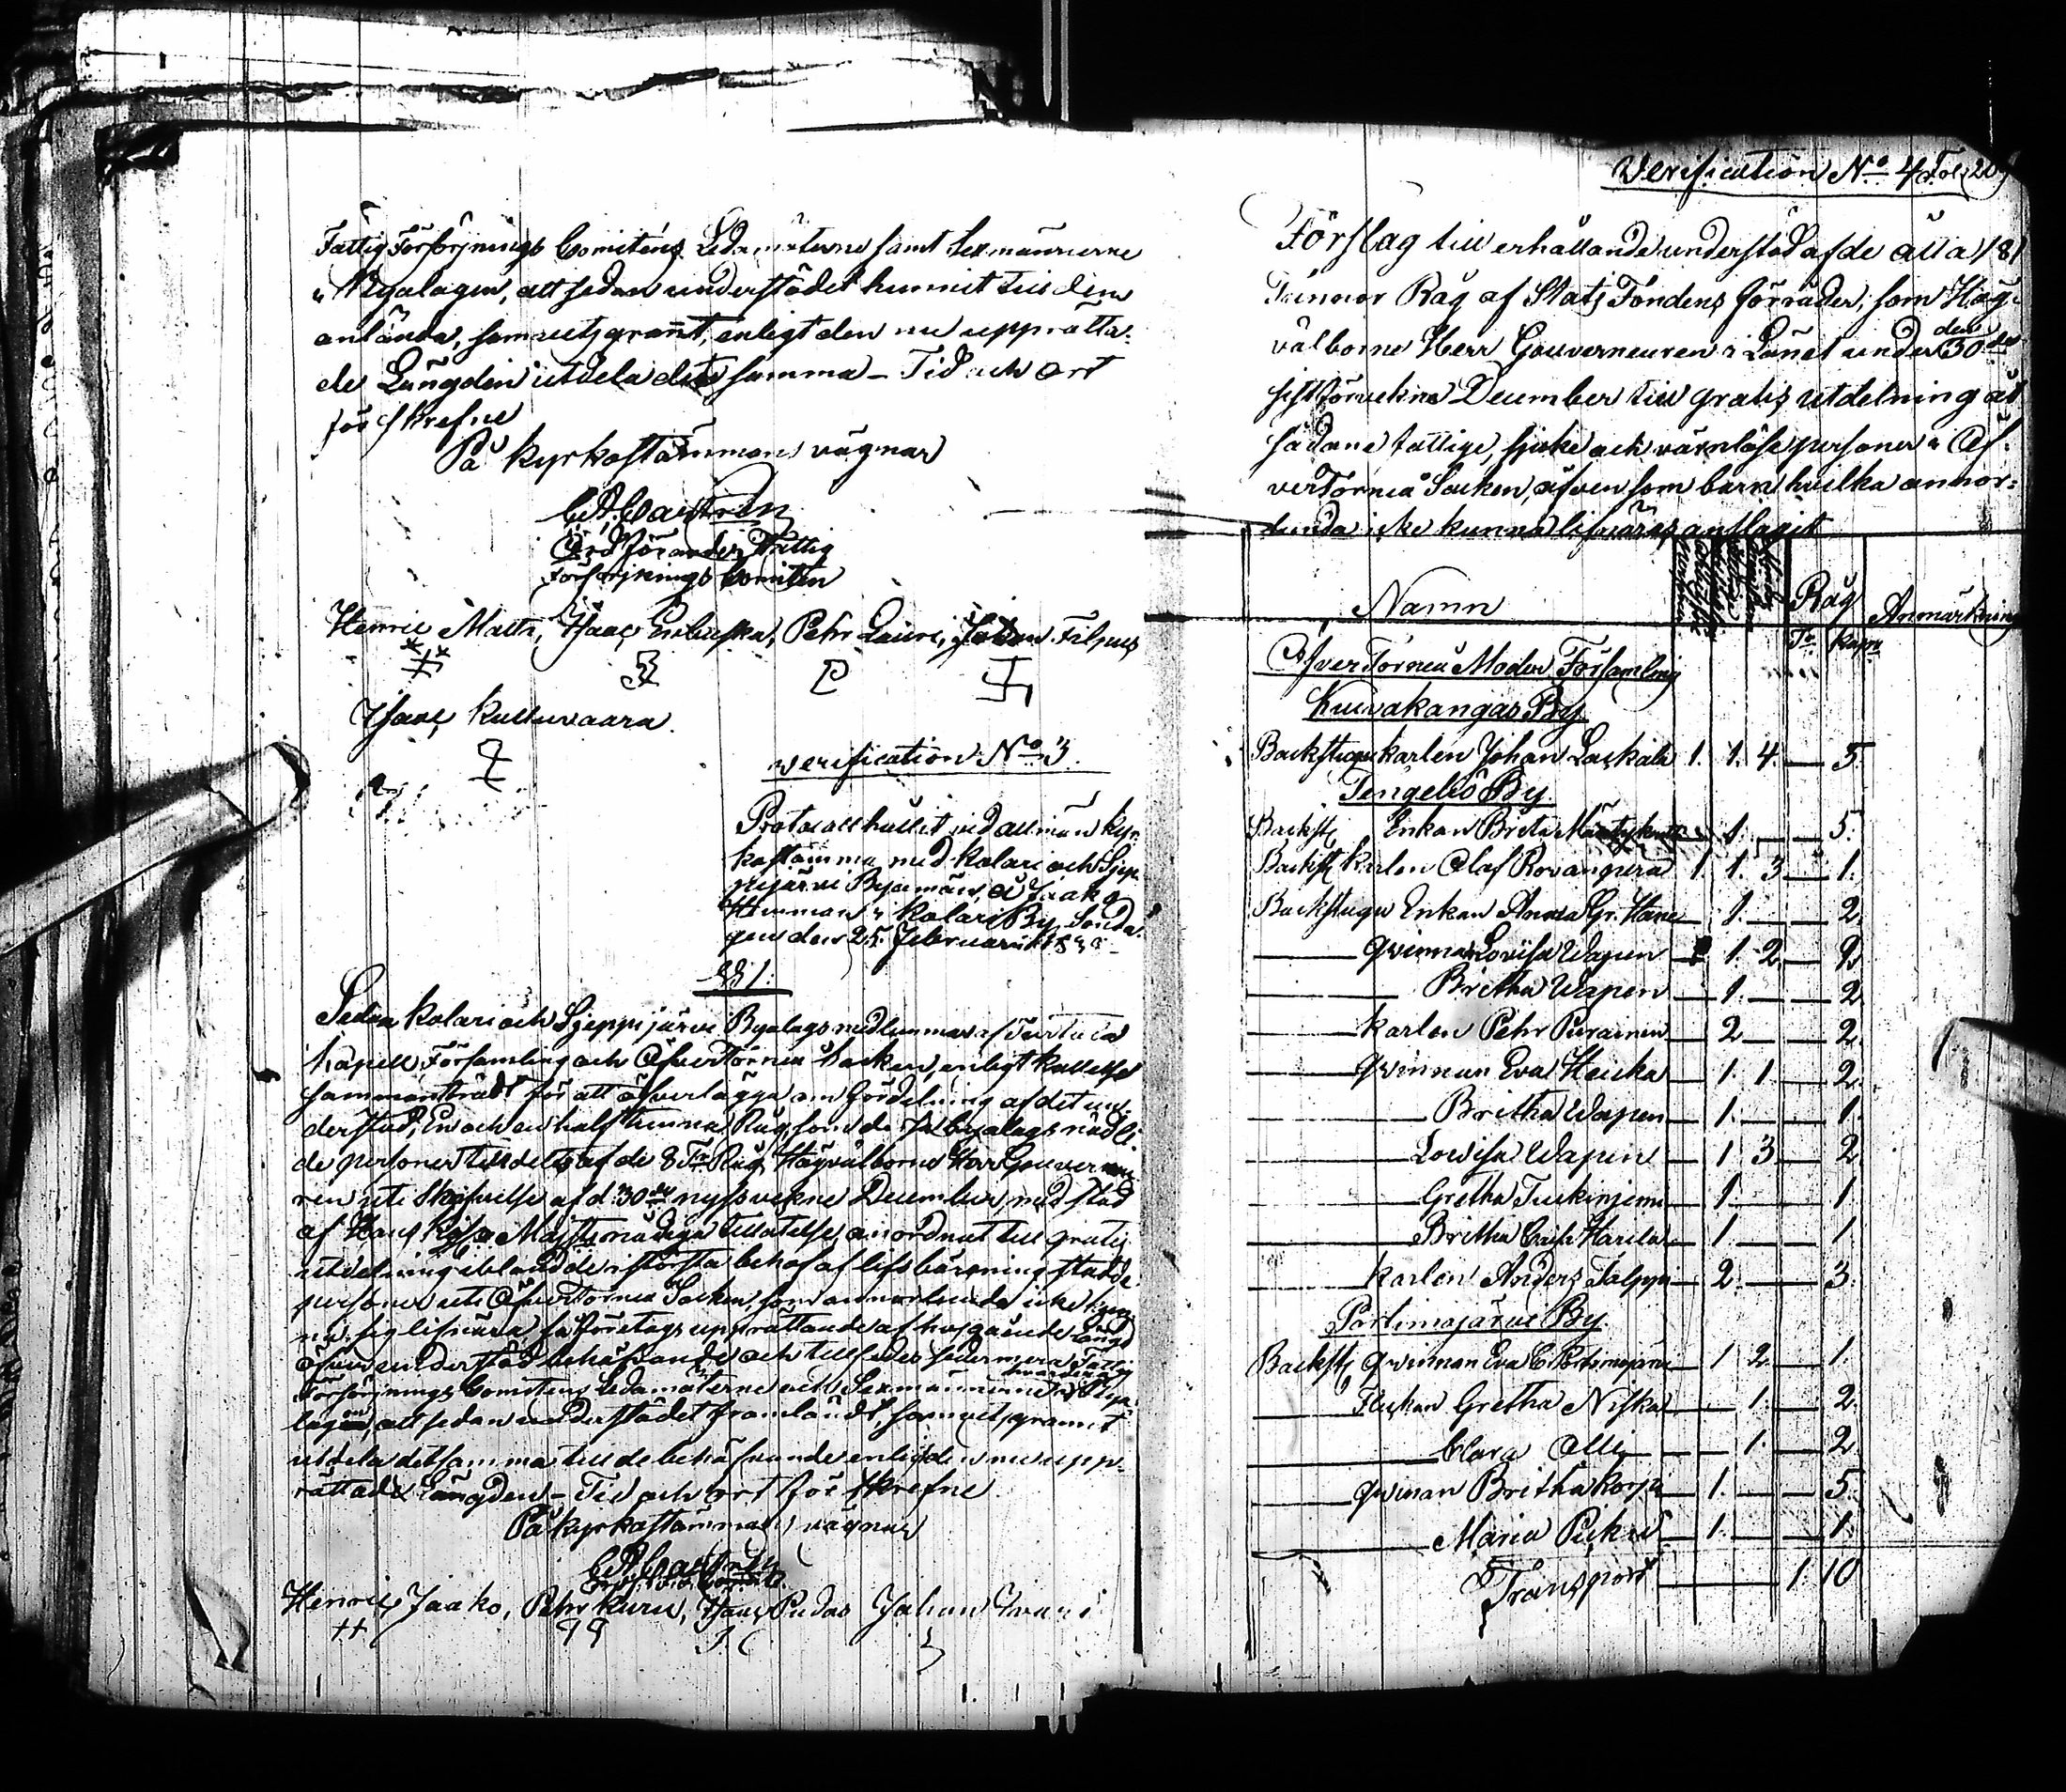 Fattig Försörjnings Comiténs Ledamöterne samt Sexmännerne
i Byalagen, att sedan understödet hunnit till dem
anlända, samvetsgrannt, enligt den nu upprätta-
de Längden utdela det samma – Tid och ort
förskrefne
På kyrkostämmans vägnar
C.A. Castrén
Ordförande i Fattig
Försörjnings Comitén
Henric Matti, Isaac, Pehr Lauri, Johan Filpus
Isaac Kulluvaara
verification No 3.
Protocoll hållit vid allmän kyr-
kostämma med Kolari och Sjep-
pijärvi Byamän, å Jaako
Hemman i Kolari By Sönda-
gen den 25 Februarii
§ 1.
Sedan Kolari och Sjeppijärvi Byalags medlemmar af Turtula
Kapell Församling och Öfver Torneå Socken, enligt kallelse
sammanträdt för att öfverlägga om fördelning af det un-
derstöd, En och en half tunna Råg, som dessa byalags nödli-
de personer tilldelts af de 8 Tr Råg, Högvälborne Herr Gouverneu-
ren uti Skrifvelse af d. 30de nyssvekne December, med stöd
af Hans Kejs. Maj:ts nådiga tillåtelse, anordnat till gratis
utdelning ibland de i största behof af lifsbärgning stadde
personer uti Öfver Torneå Socken, som annorlunda icke kun-
na sig lifnära, så företogs upprättande af hosgående Längd
öfver understöd behöfvande och tillsades sedermera Fattig
Försörjnings Comitens Ledamöterne och Sexmännerne i Bya-
lagen, att sedan understödet framländt, samvetsgrannt
utdela detsamma till de behöfvande enligt den nu upp-
rättade Längden – Tid och ort förskrefne
På kyrkostämmans vägnar
C.A. Castrén
Henric Jaako, Pehr Kuru, Isaac Pudas Johan
Verification No 4 Fol. 209
Förslag till erhållande understöd af de alla 181
Tunnor Råg af Stats Fondens förråder, som Hög-
välborne Herr Gouverneuren i Länet under den 30de
sistförvekne December till gratis utdelning åt
sådane fattige, sjuke och värnlöse personer i Öf-
ver Torneå Socken, äfven som barn hvilka annor-
lunda icke kunna lifnäras, anslagit
Namn Råg Anmärkning
Tr kapr
Öfver Torneå Moder Församling
Kuivakangas By
Backstugu karlen Johan Laskala 1. 1. 4. — 5.
Tengeliö By
Backst Enkan Brita 1. — 5.
Backst Karlen Olaf Rovanperä 1. 1. 3 — 1.
Backstugu Enkan Anna Gr. Hane 1. — 2
— qvinnan Lovisa Wapen — 1. 2 — 2
— Britha Wapen — 1. — 2
— Karlen Pehr Purainen — 2 — 2
— qvinnan Eva Heicka — 1. 1 — 2
— Britha Wapen — 1. — 1.
— Lowisa Wapen — 1 3 — 2
— Gretha — 1. — 1
— Britha Caisa Harila — 1 — 1.
— Karlen Anders Talppi — 2. — 3.
Portimojärvi By
Backst qvinnan Eva C. Portimojärvi — 1 2 — 1.
— Flickan Gretha Niska — 1. — 2.
— Clara Olli — 1. — 2
— qvinnan Britha Korpi — 1. — 5.
— Maria — 1. — 1.
Transport — 1. 10